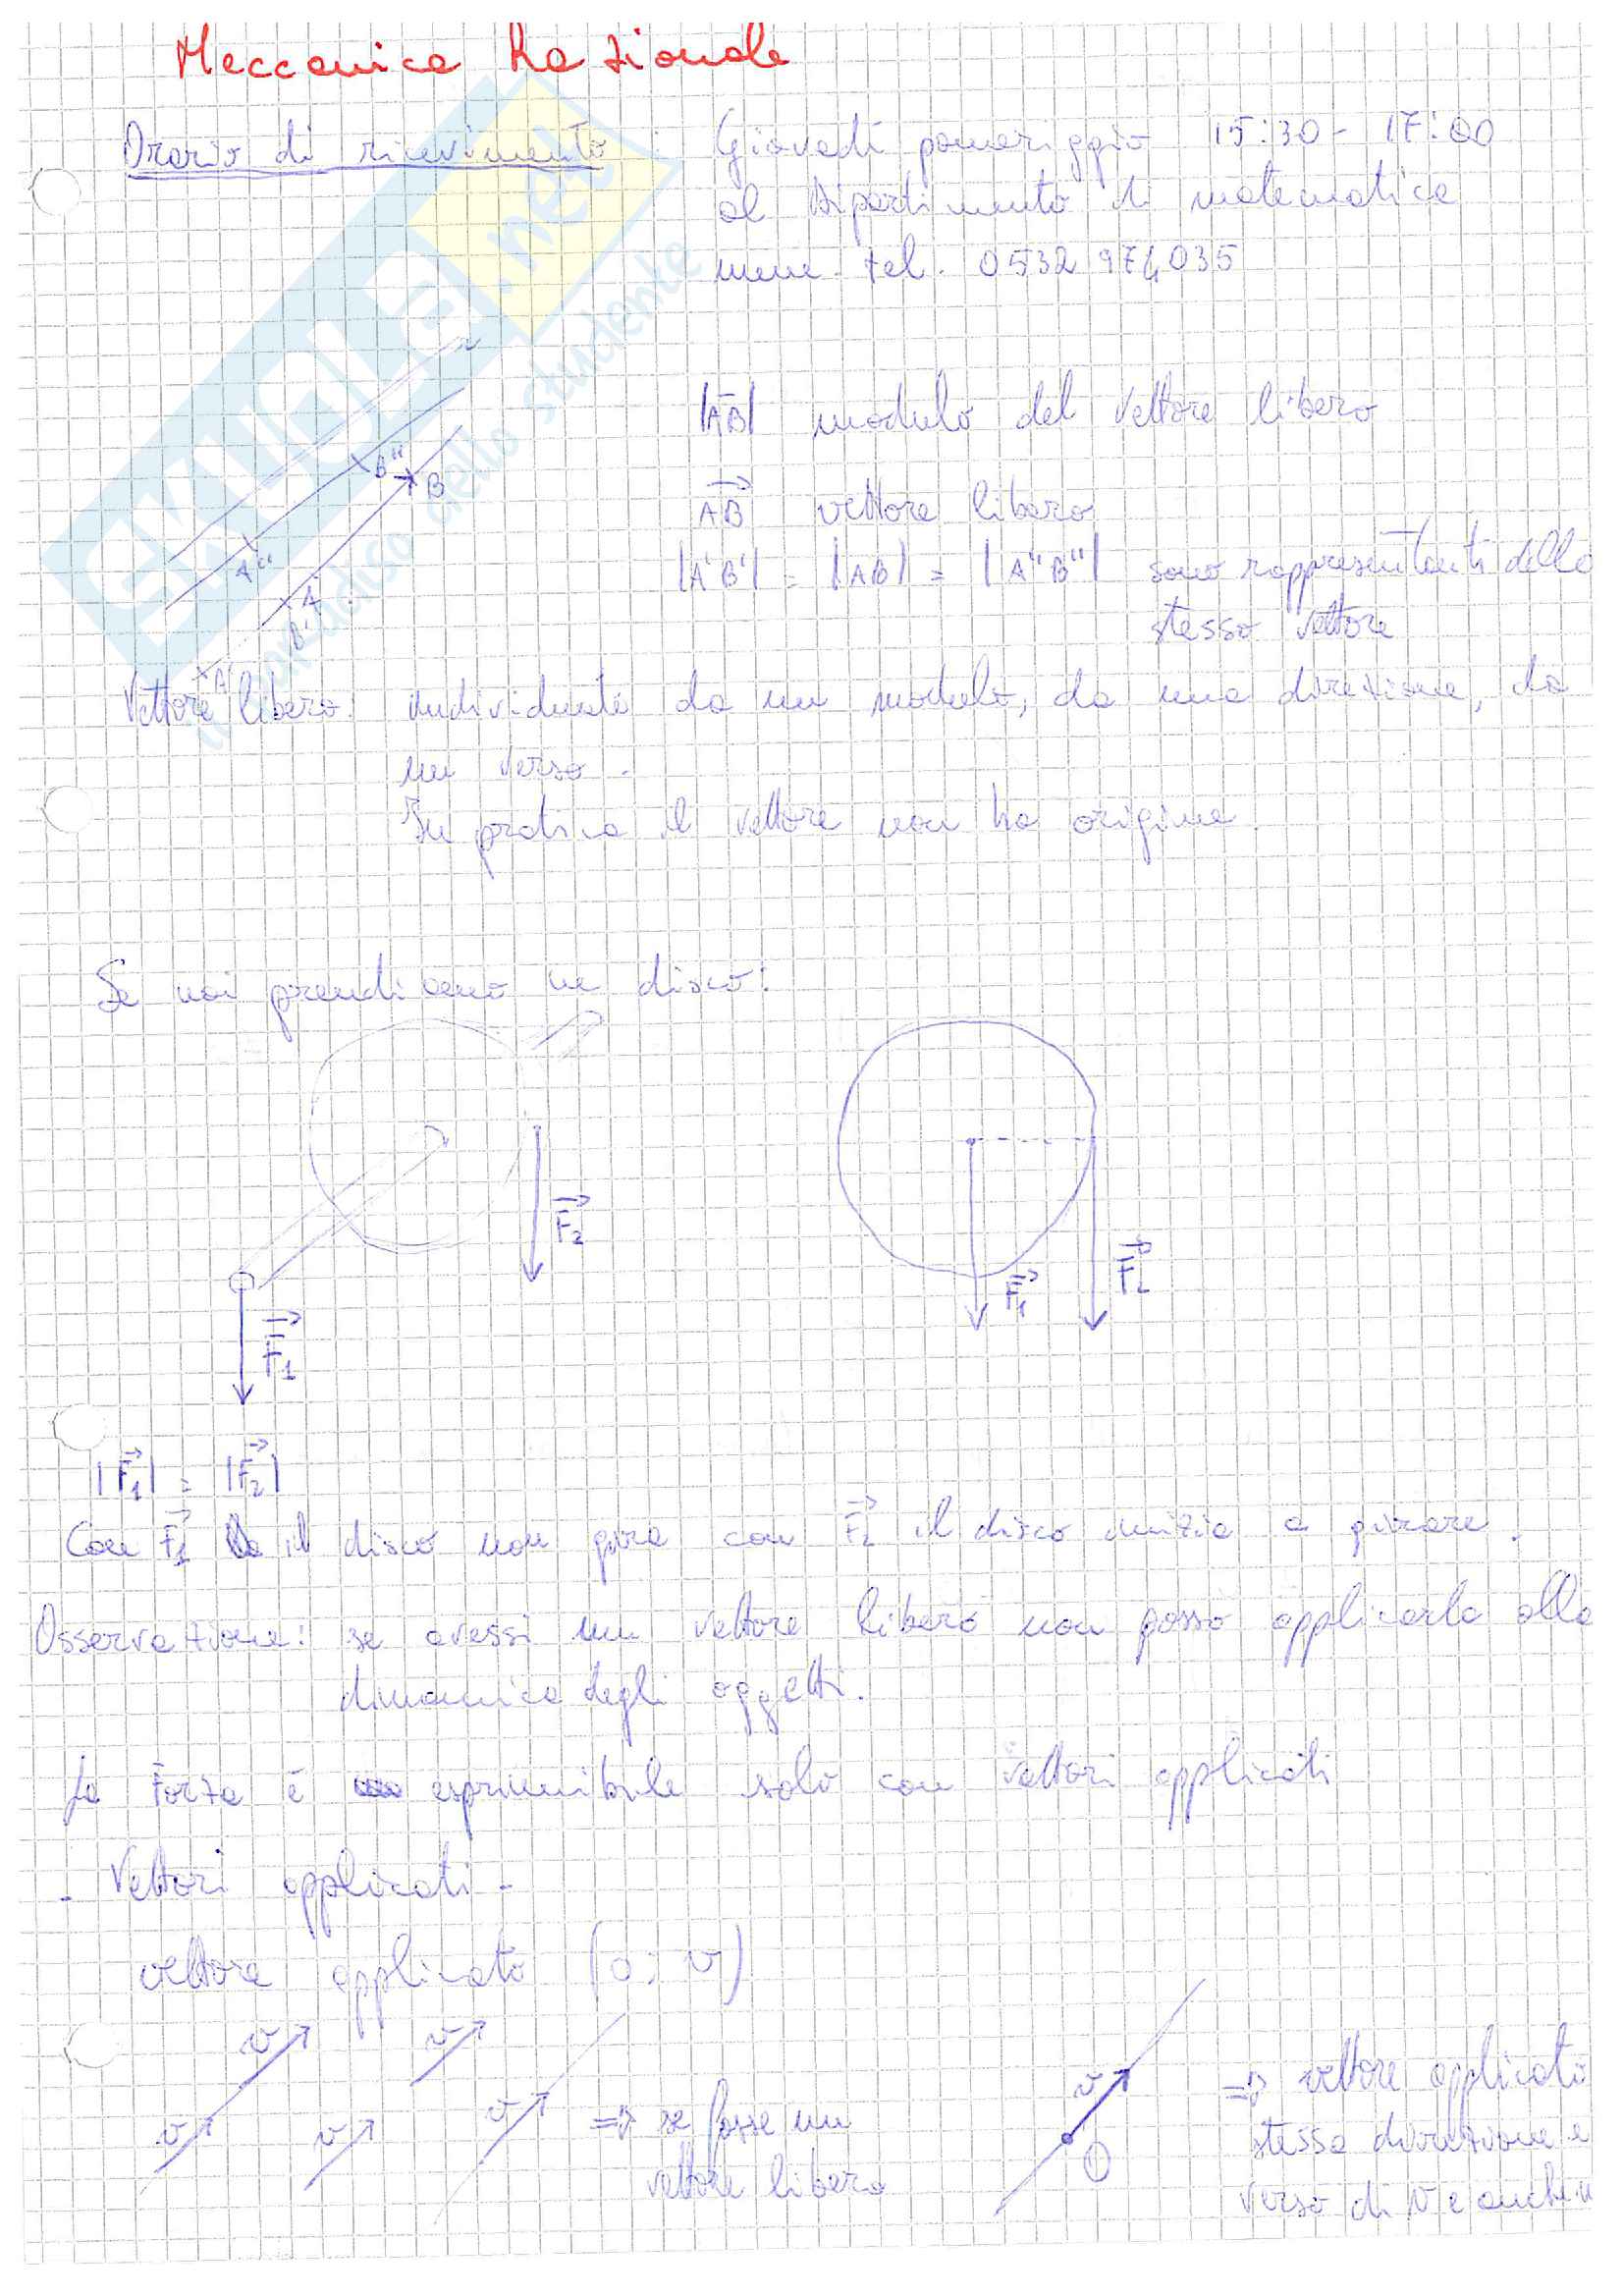 Meccanica Razionale
Orario di ricevimento : Giovedì pomeriggio 15:30 - 17:00
al Dipartimento di matematica
num. tel. 0532 974035
|AB| modulo del vettore libero
B"
B
AB vettore libero
A"
|A'B'| = |AB| = |A"B"| sono rappresentanti dello
A
stesso vettore
B'
A'
Vettore libero: individuato da un modulo, da una direzione, da
un verso.
In pratica il vettore non ha origine.
Se noi prendiamo un disco:
F2
F1
F2
F1
|F1| = |F2|
Con F1 il disco non gira con F2 il disco inizia a girare.
Osservazione: se avessi un vettore libero non posso applicarlo alla
dinamica degli oggetti.
La Forza è esprimibile solo con vettori applicati
- Vettori applicati -
vettore applicato (O; v)
v v v v v
=> se fosse un
vettore libero
v
O
=> vettore applicato
stessa direzione e
verso di v e anche